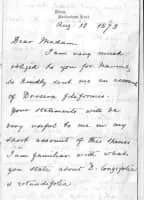 Down,
Beckenham, Kent.
Aug 13 1873
Dear Madam
I am very much
obliged to you for having
so kindly sent me an account
of Drosera filiformis.
Your statements will be
very useful to me in my
short account of this species
I am familiar with what
you state about D. longifolia
& rotundifolia